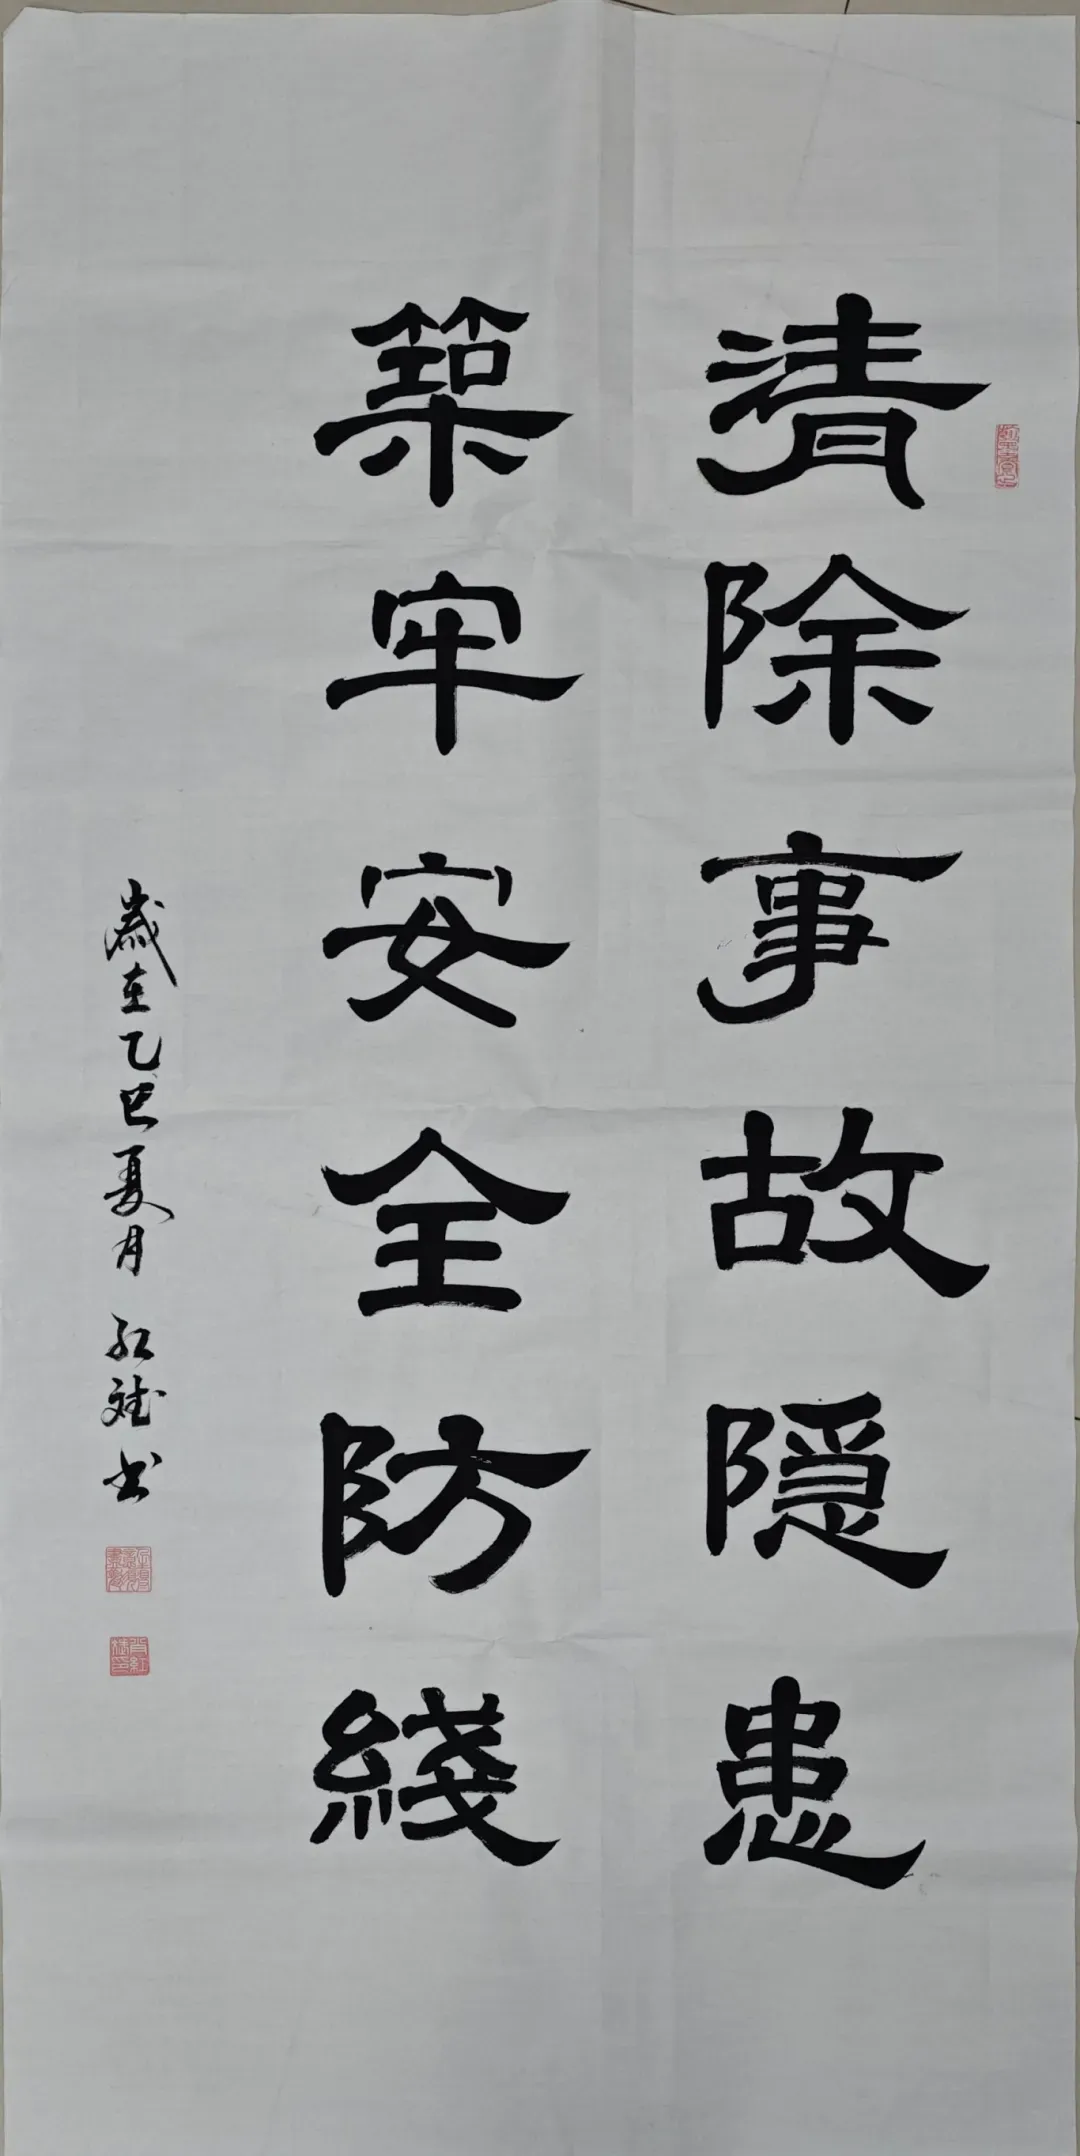 清除事故隱患
築牢安全防綫
歲在乙巳夏月 紅斌書